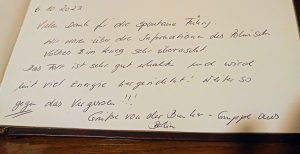 6.10.2023
Vielen Dank für die spontane Führung.
Wir waren über die Informationen des Polnischen
Volkes im Krieg sehr überrascht.
Das Fort ist sehr gut erhalten und wird
mit viel Energie hergerichtet! Weiter so
gegen das Vergessen!!!
Grüße von der Bunker-Gruppe aus
Berlin